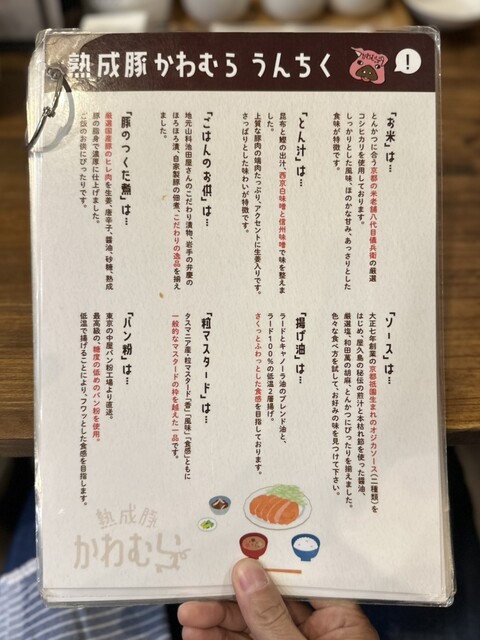 熟成豚かわむら うんちく
かわむら
!
「お米」は…
とんかつに合う京都の米老舗八代目儀兵衛の厳選
コシヒカリを使用しております。
しっかりとした風味、ほのかな甘み、あっさりとした
食味が特徴です。
「とん汁」は…
昆布と鰹の出汁、西京白味噌と信州味噌で味を整えま
上質な豚肉の端肉たっぷり、アクセントに生姜入りです。
さっぱりとした味わいが特徴です。
「ごはんのお供」は…
地元山科池田屋さんのこだわり漬物、岩手の弁慶の
ほろほろ漬、自家製豚の佃煮、こだわりの逸品を揃え
ました。
「豚のつくだ煮」は…
厳選国産豚のヒレ肉を生姜、唐辛子、醤油、砂糖、熟成
豚の脂身で濃厚に仕上げました。
ご飯のお供にぴったりです。
「ソース」は…
大正七年創業の京都祇園生まれのオジカソース(二種類)を
はじめ、屋久島の秘伝の煎汁と本枯れ節を使った醤油、
厳選塩、和田萬の胡麻、とんかつにぴったりを揃えました。
色々な食べ方を試して、お好みの味を見つけて下さい。
「揚げ油」は…
ラードとキャノーラ油のブレンド油と、
ラード100%の低温2層揚げ。
さくっとふわっとした食感を目指しております。
「粒マスタード」は…
タスマニア産・粒マスタード「香」「風味」「食感」ともに
一般的なマスタードの枠を越えた一品です。
「パン粉」は…
東京の中屋パン粉工場より直送。
最高級の、糖度の低めのパン粉を使用。
低温で揚げることにより、フワッとした食感を目指します。
熟成豚
かわむら